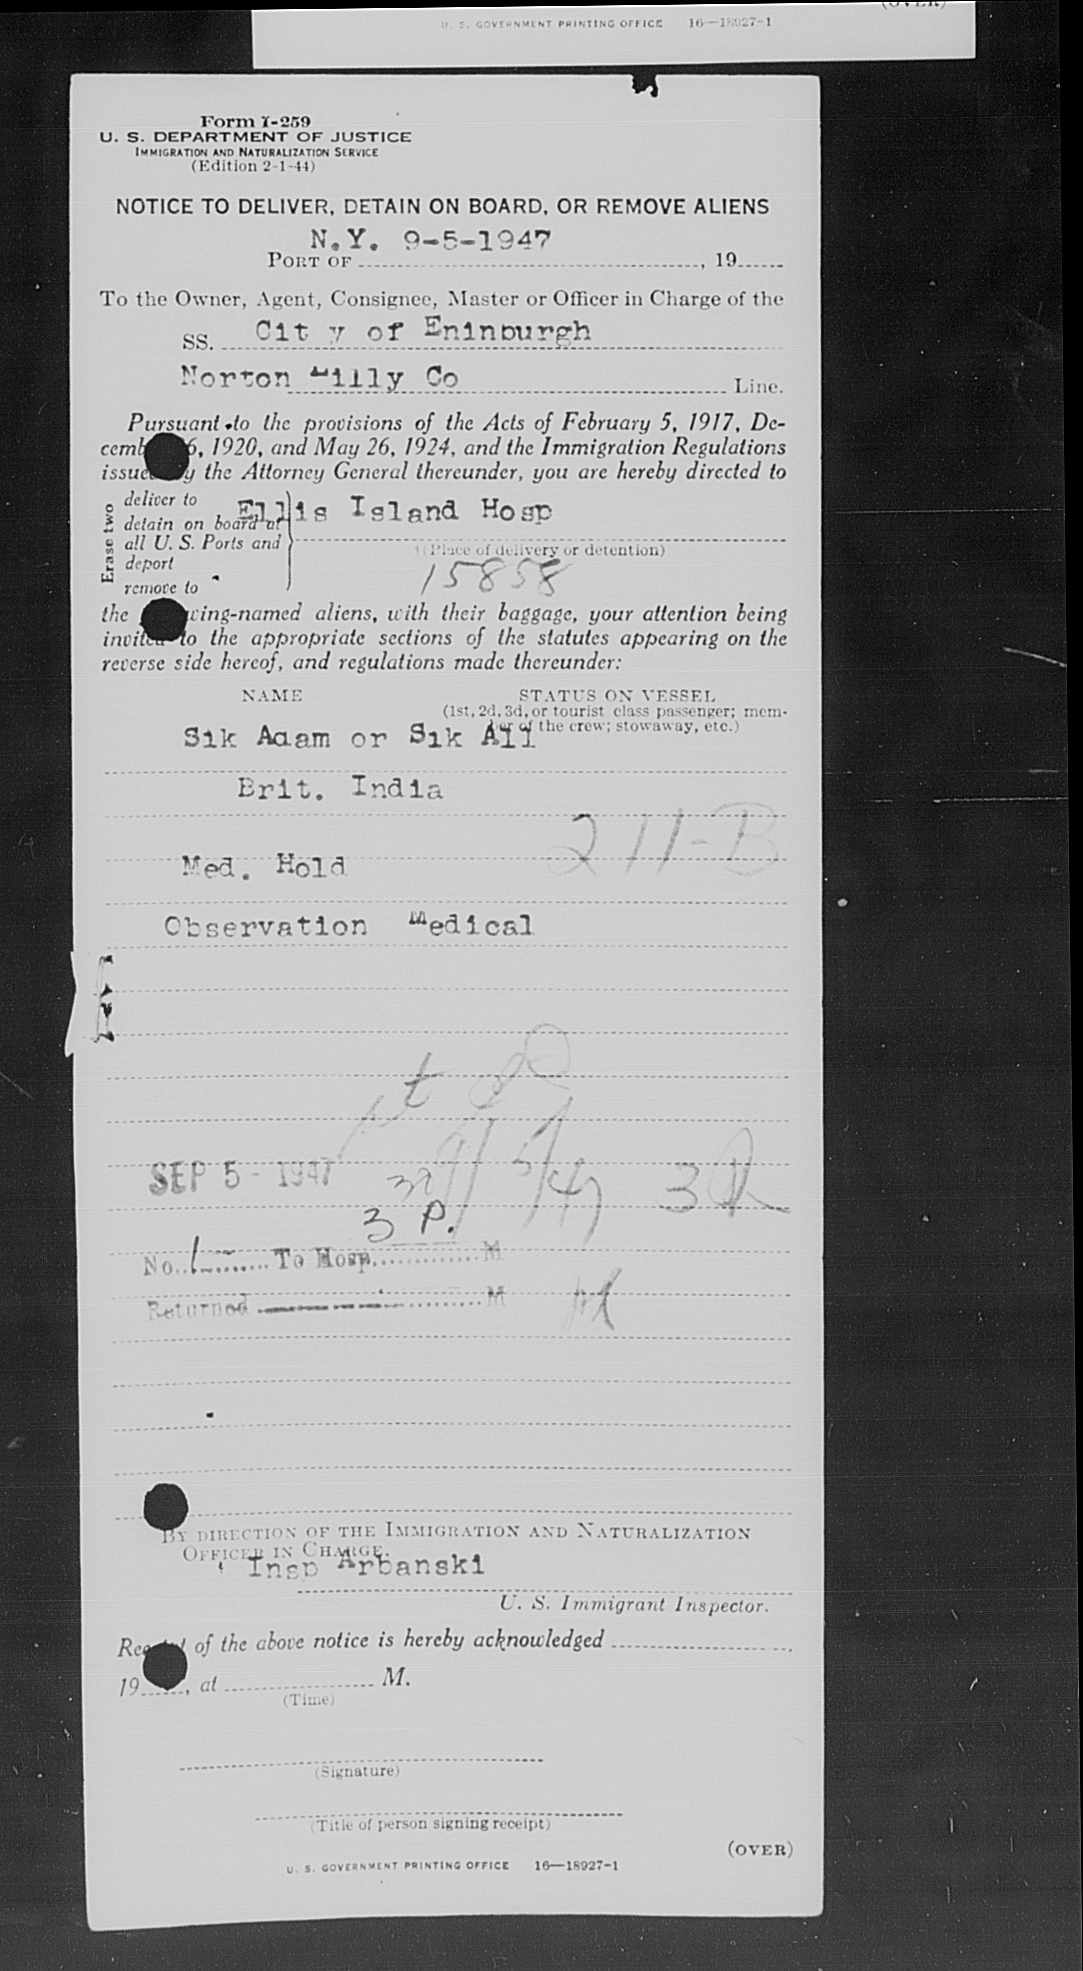 (OVER)
U. S. GOVERNMENT PRINTING OFFICE 16—18927-1
Form I-259
U. S. DEPARTMENT OF JUSTICE
IMMIGRATION AND NATURALIZATION SERVICE
(Edition 2-1-44)
NOTICE TO DELIVER, DETAIN ON BOARD, OR REMOVE ALIENS
N.Y. 9-5-1947
PORT OF , 19
To the Owner, Agent, Consignee, Master or Officer in Charge of the
SS. Cit y of Eninburgh
Norton Lilly Co Line.
Pursuant to the provisions of the Acts of February 5, 1917, De-
cemb 6, 1920, and May 26, 1924, and the Immigration Regulations
issued by the Attorney General thereunder, you are hereby directed to
Erase two
deliver to
detain on board at
all U. S. Ports and
deport
remove to
Ellis Island Hosp
(Place of delivery or detention)
15858
the wing-named aliens, with their baggage, your attention being
invited to the appropriate sections of the statutes appearing on the
reverse side hereof, and regulations made thereunder:
NAME STATUS ON VESSEL
(1st, 2d, 3d, or tourist class passenger; mem-
ber of the crew; stowaway, etc.)
Sik Adam or Sik All
Brit. India
211-B
Med. Hold
Observation Medical
SEP 5 - 1947
9/5/47
3 P.
No. 1 To Hosp. M
Returned M
BY DIRECTION OF THE IMMIGRATION AND NATURALIZATION
OFFICER IN CHARGE.
Insp Arbanski
U. S. Immigrant Inspector.
Receipt of the above notice is hereby acknowledged
19 , at M.
(Time)
(Signature)
(Title of person signing receipt)
(OVER)
U. S. GOVERNMENT PRINTING OFFICE 16—18927-1